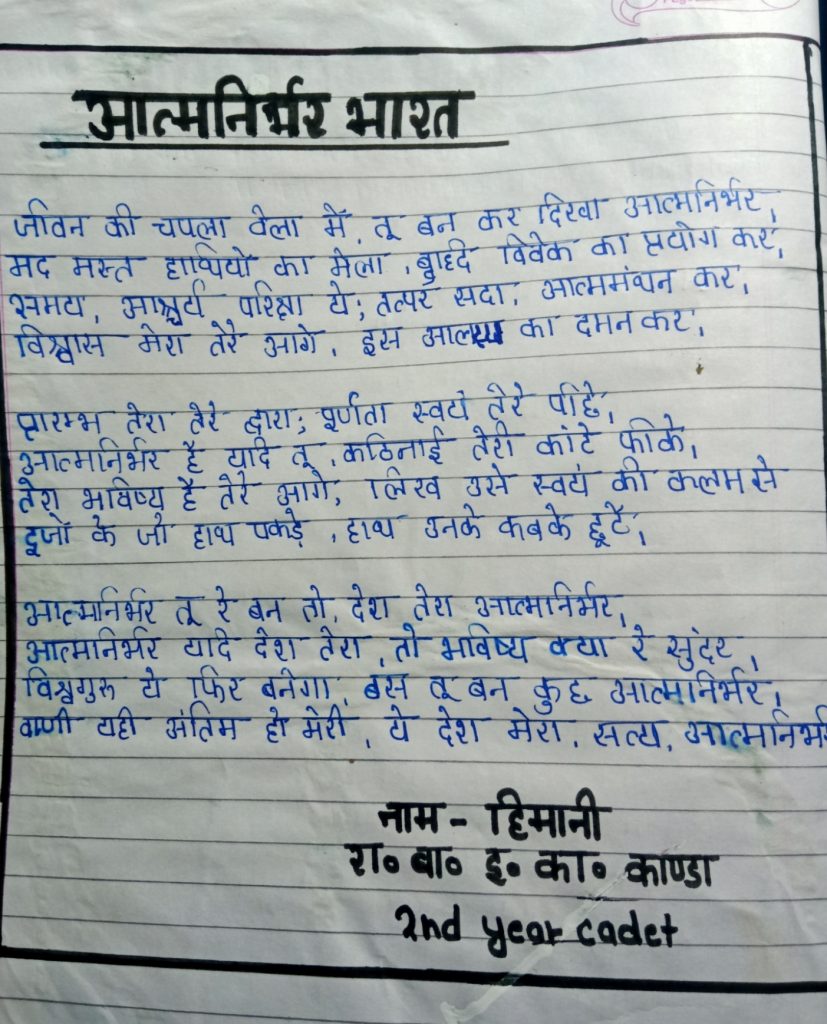 आत्मनिर्भर भारत
जीवन की चपला वेला में, तू बन कर दिखा आत्मनिर्भर,
मद मस्त हाथियों का मेला, बुद्दि विवेक का प्रयोग कर,
समय, आश्चर्य परिक्षा ये; तत्पर सदा, आत्ममंथन कर,
विश्वास मेरा तेरे आगे, इस आलस्य का दमन कर,
प्रारम्भ तेरा तेरे द्वारा; पूर्णता स्वयं तेरे पीछे,
आत्मनिर्भर है यदि तू, कठिनाई तेरी कांटे फीके,
तेरा भविष्य है तेरे आगे, लिख उसे स्वयं की कलम से
दूजों के जो हाथ पकड़े, हाथ उनके कबके छूटे,
आत्मनिर्भर तू रे बन तो, देश तेरा आत्मनिर्भर,
आत्मनिर्भर यदि देश तेरा, तो भविष्य क्या रे सुंदर,
विश्वगुरू ये फिर बनेगा, बस तू बन कुछ आत्मनिर्भर,
वाणी यही अंतिम हो मेरी, ये देश मेरा, सत्य, आत्मनिर्भर
नाम - हिमानी
रा० बा० इ० का० काण्डा
2nd year cadet